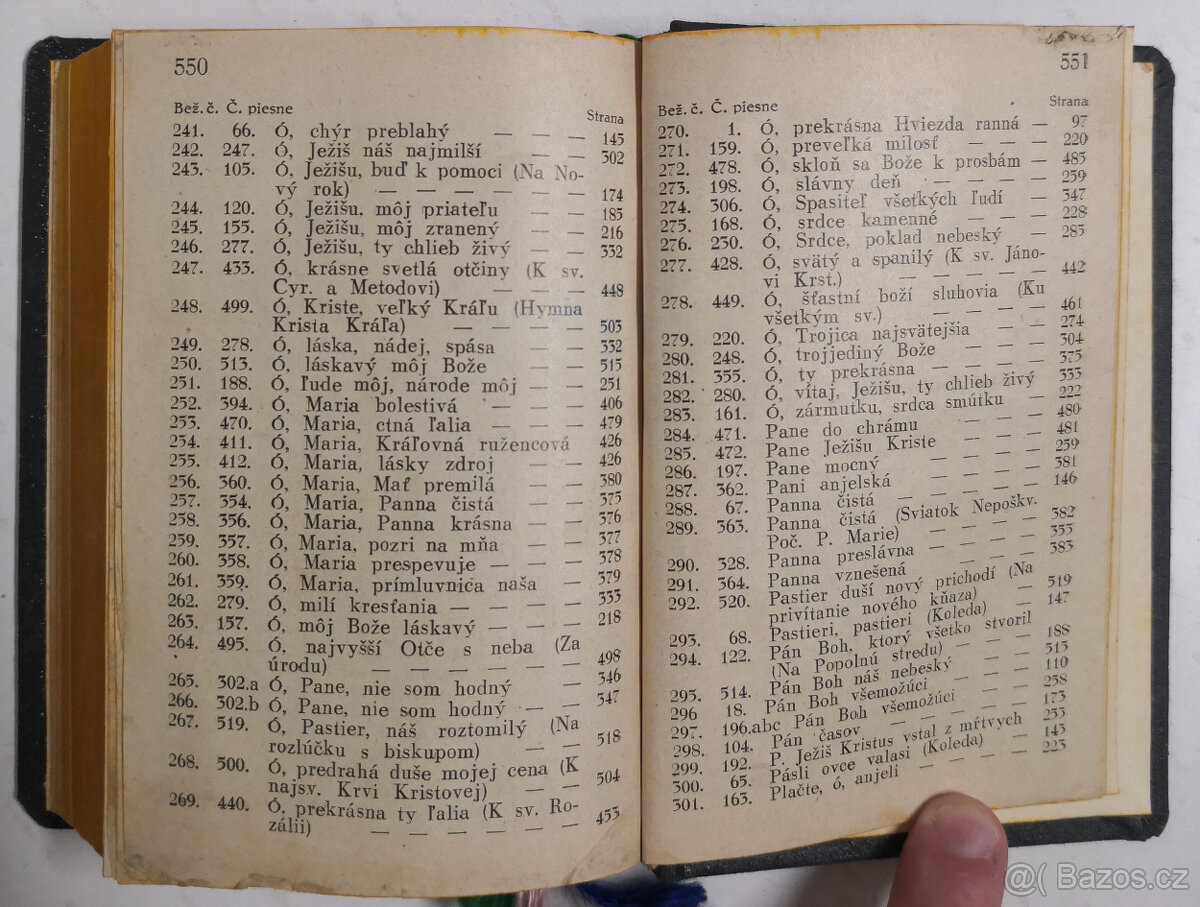 550
Bež. č. Č. piesne Strana
241. 66. Ó, chýr preblahý — — — 145
242. 247. Ó, Ježiš náš najmilší — — 302
243. 105. Ó, Ježišu, buď k pomoci (Na No-
vý rok) — — — — — — 174
244. 120. Ó, Ježišu, môj priateľu — — 185
245. 155. Ó, Ježišu, môj zranený — — 216
246. 277. Ó, Ježišu, ty chlieb živý — — 332
247. 433. Ó, krásne svetlá otčiny (K sv.
Cyr. a Metodovi) — — — — 448
248. 499. Ó, Kriste, veľký Kráľu (Hymna
Krista Kráľa) — — — — 503
249. 278. Ó, láska, nádej, spása — — 332
250. 513. Ó, láskavý môj Bože — — 515
251. 188. Ó, ľude môj, národe môj — — 251
252. 394. Ó, Maria bolestivá — — — 406
253. 470. Ó, Maria, ctná ľalia — — — 479
254. 411. Ó, Maria, Kráľovná ružencová 426
255. 412. Ó, Maria, lásky zdroj — — 426
256. 360. Ó, Maria, Mať premilá — — 380
257. 354. Ó, Maria, Panna čistá — — 375
258. 356. Ó, Maria, Panna krásna — — 376
259. 357. Ó, Maria, pozri na mňa — — 377
260. 358. Ó, Maria prespevuje — — — 378
261. 359. Ó, Maria, prímluvnica naša — 379
262. 279. Ó, milí kresťania — — — — 333
263. 157. Ó, môj Bože láskavý — — — 218
264. 495. Ó, najvyšší Otče s neba (Za
úrodu) — — — — — — 498
265. 302.a Ó, Pane, nie som hodný — 346
266. 302.b Ó, Pane, nie som hodný — — 347
267. 519. Ó, Pastier, náš roztomilý (Na
rozlúčku s biskupom) — — 518
268. 500. Ó, predrahá duše mojej cena (K
najsv. Krvi Kristovej) — — 504
269. 440. Ó, prekrásna ty ľalia (K sv. Ro-
zálii) — — — — — — 453
551
Bež. č. Č. piesne Strana
270. 1. Ó, prekrásna Hviezda ranná — 97
271. 159. Ó, preveľká milosť — — — 220
272. 478. Ó, skloň sa Bože k prosbám — 485
273. 198. Ó, slávny deň — — — — 259
274. 306. Ó, Spasiteľ všetkých ľudí — 347
275. 168. Ó, srdce kamenné — — — 228
276. 230. Ó, Srdce, poklad nebeský — — 285
277. 428. Ó, svätý a spanilý (K sv. Jáno-
vi Krst.) — — — — — 442
278. 449. Ó, šťastní boží sluhovia (Ku
všetkým sv.) — — — — 461
279. 220. Ó, Trojica najsvätejšia — — 274
280. 248. Ó, trojjediný Bože — — — 304
281. 355. Ó, ty prekrásna — — — — 375
282. 280. Ó, vítaj, Ježišu, ty chlieb živý 333
283. 161. Ó, zármutku, srdca smútku — 222
284. 471. Pane do chrámu — — — — 480
285. 472. Pane Ježišu Kriste — — — 481
286. 197. Pane mocný — — — — — 259
287. 362. Pani anjelská — — — — 381
288. 67. Panna čistá — — — — — 146
289. 363. Panna čistá (Sviatok Nepoškv.
Poč. P. Marie) — — — — 382
290. 328. Panna preslávna — — — — 355
291. 364. Panna vznešená — — — — 383
292. 520. Pastier duší nový prichodí (Na
privítanie nového kňaza) — 519
293. 68. Pastieri, pastieri (Koleda) — 147
294. 122. Pán Boh, ktorý všetko stvoril
(Na Popolnú stredu) — — 188
295. 514. Pán Boh náš nebeský — — 515
296 18. Pán Boh všemožúci — — — 110
297. 196.abc Pán Boh všemožúci — — 258
298. 104. Pán časov — — — — — 173
299. 192. P. Ježiš Kristus vstal z mŕtvych 255
300. 65. Pásli ovce valasi (Koleda) — 145
301. 163. Plačte, ó, anjeli — — — — 223
@( Bazos.cz